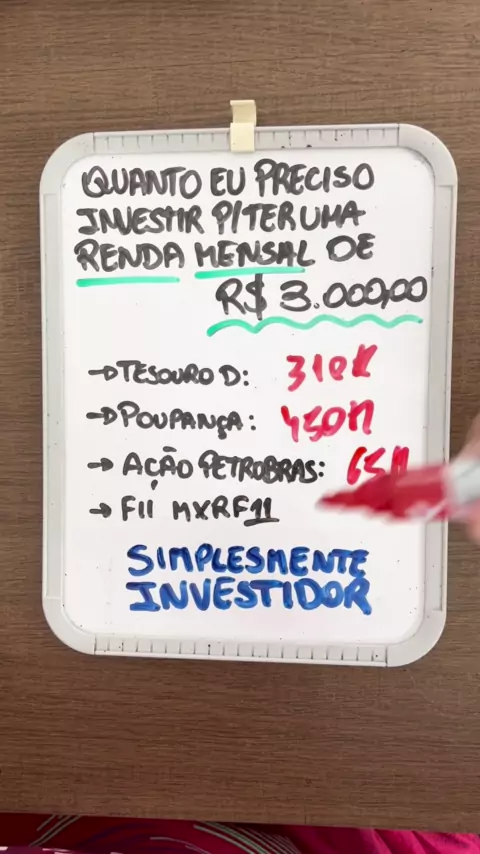 QUANTO EU PRECISO
INVESTIR P/TER UMA
RENDA MENSAL DE
R$ 3.000,00
→TESOURO D: 310K
→POUPANÇA: 450K
→ AÇÃO PETROBRAS: 65K
→ FII MXRF11
SIMPLESMENTE
INVESTIDOR